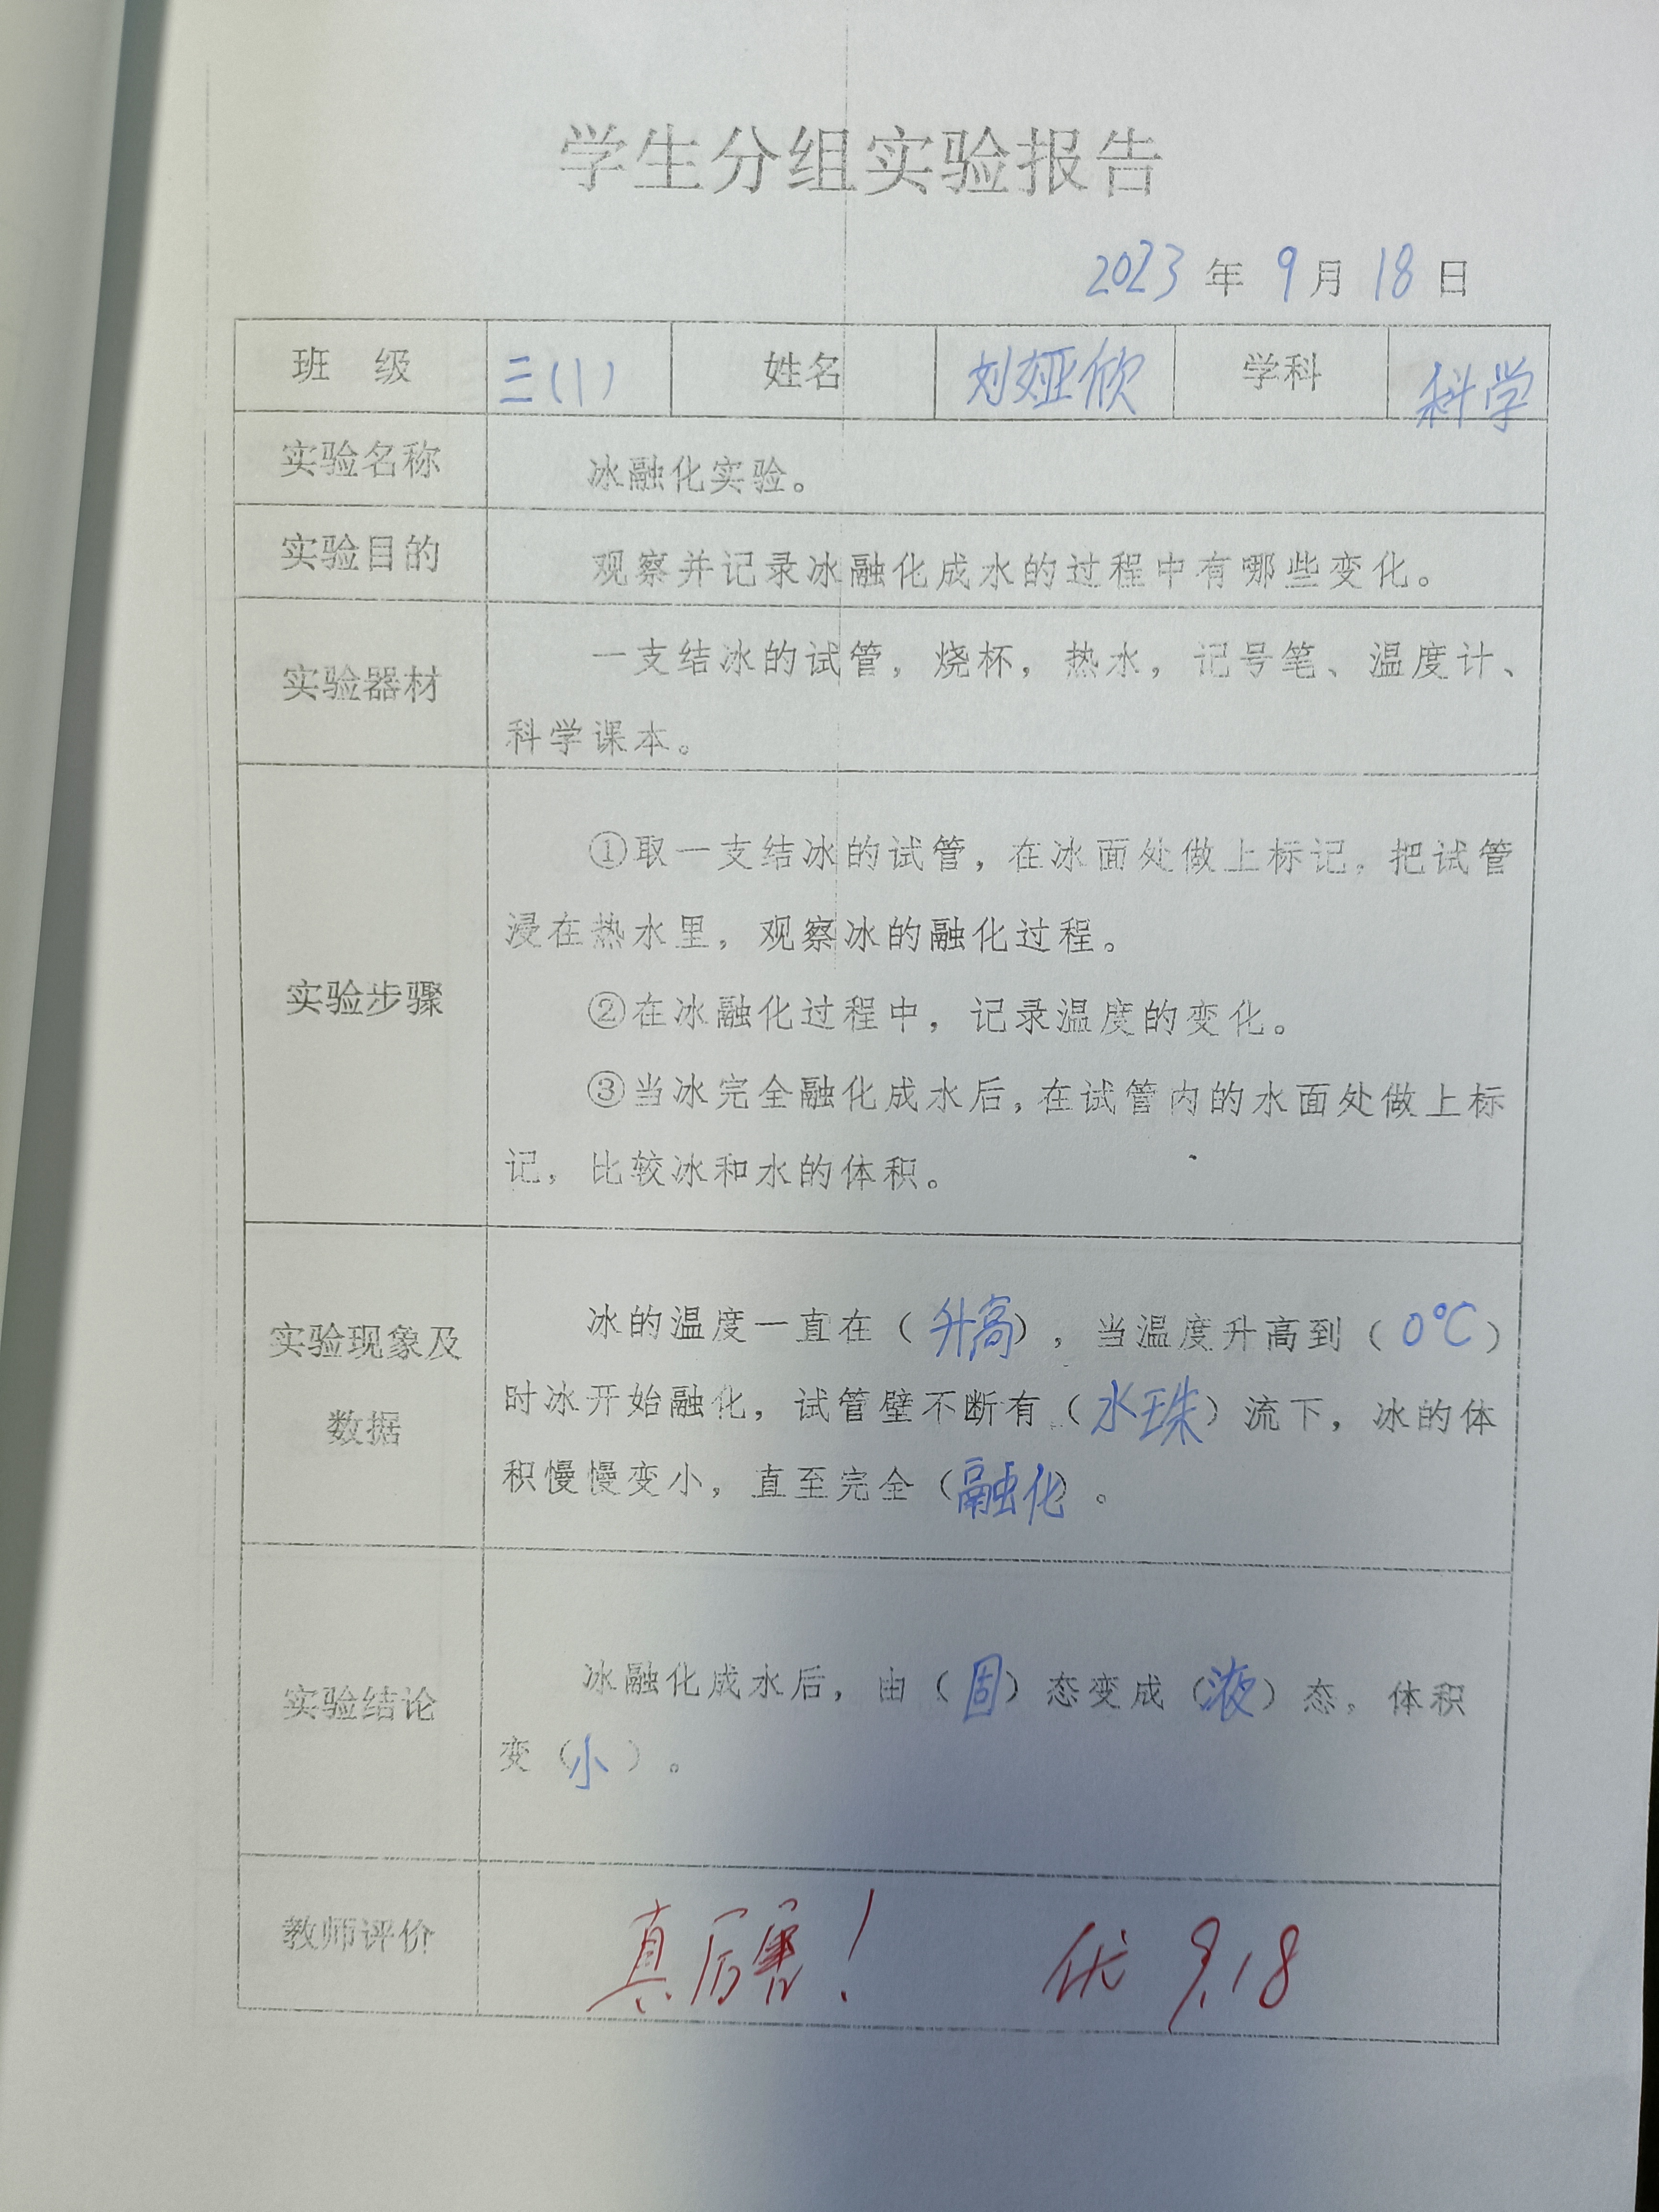 学生分组实验报告
2023年9月18日
班 级 三(1) 姓名 刘娅欣 学科 科学
实验名称 冰融化实验。
实验目的 观察并记录冰融化成水的过程中有哪些变化。
实验器材 一支结冰的试管，烧杯，热水，记号笔、温度计、
科学课本。
①取一支结冰的试管，在冰面处做上标记。把试管
浸在热水里，观察冰的融化过程。
实验步骤 ②在冰融化过程中，记录温度的变化。
③当冰完全融化成水后，在试管内的水面处做上标
记，比较冰和水的体积。
实验现象及 冰的温度一直在（升高），当温度升高到（0℃）
数据 时冰开始融化，试管壁不断有（水珠）流下，冰的体
积慢慢变小，直至完全（融化）。
实验结论 冰融化成水后，由（固）态变成（液）态。体积
变（小）。
教师评价 真厉害！ 优 9.18